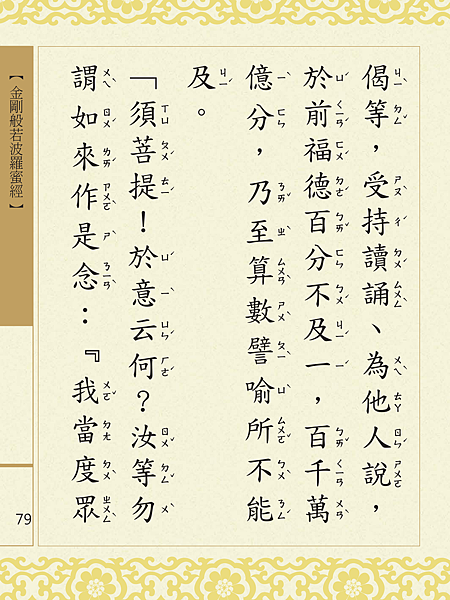 偈等，受持讀誦、為他人說，
於前福德百分不及一，百千萬
億分，乃至算數譬喻所不能
及。
「須菩提！於意云何？汝等勿
謂如來作是念：『我當度眾
【金剛般若波羅蜜經】
79